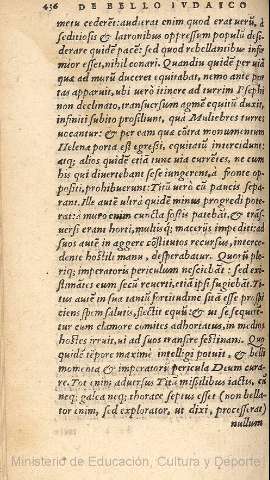 436 DE BELLO IVDAICO
metu cederet: audierat enim quod erat verũ, à
seditiosis & latronibus oppressum populũ desi-
derare quidẽ pacẽ: sed quod rebellantibus infir
mior esset, nihil conari. Quandiu quidẽ per viã
quæ ad murũ duceret equitabat, nemo ante por
tas apparuit. ubi verò itinere ad turrim Psephi
non declinato, transuersum agmẽ equitũ duxit,
infiniti subito prosiliunt, quà Muliebres turres
vocantur: & per eam quæ cõtra monumentum
Helenæ porta est egressi, equitatũ intercidunt:
atq; alios quidẽ etiã tunc via currẽtes, ne cum
his qui divertebant sese iungerent, à fronte op-
positi, prohibuerunt: Titũ verò cũ paucis sepa-
rant. Ille autẽ ultrà quidẽ minus progredi pote
rat: à muro enim cuncta fossis patebãt, & trãs-
versi erant horti, multisq; macerijs impediti: ad
suos autẽ in aggere cõstitutos recursus, interce-
dente hostili manu, desperabatur. Quorũ ple-
riq; imperatoris periculum nesciebãt: sed exi-
stimãtes eum secũ reuerti, etiã ipsi fugiebãt. Ti-
tus autẽ in sua tantũ fortitudine sitã esse prospi
ciens spem salutis, flectit equũ: & ut se sequerẽ-
tur eum clamore comites adhortatus, in medios
hostes irruit, ut ad suos transire festinans. Quo
quidẽ tẽpore maximè intelligi potuit, & belli
momenta & imperatoris pericula Deum cura-
re. Tot enim aduersus Titũ missilibus iactis, cũ
neq; galea neq; thorace septus esset (non bella-
tor enim, sed explorator, ut dixi, processerat)
nullum
Ministerio de Educación, Cultura y Deporte